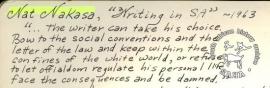 Nat Nakasa, "Writing in S.A" ~1963
"... The writer can take his choice.
Bow to the social conventions and the
letter of the law and keep within the
confines of the white world, or refuse
to let officialdom regulate his personal life
face the consequences and be damned.